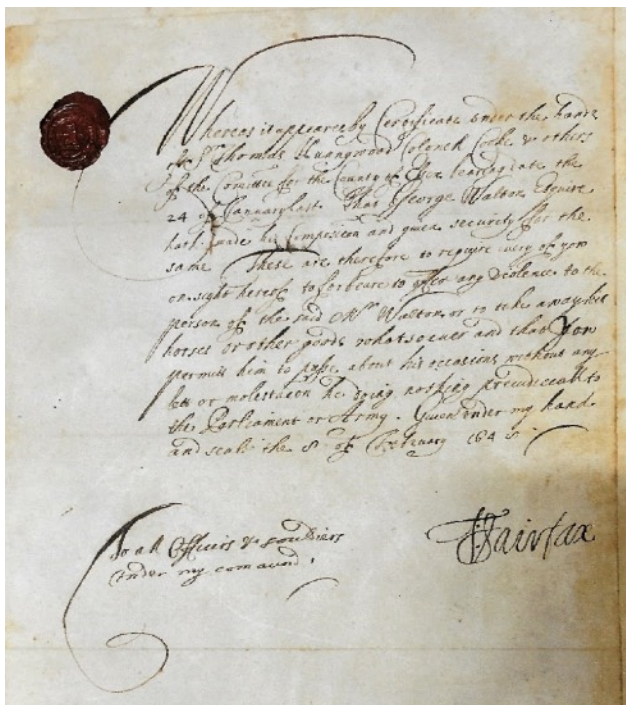 Whereas it appeares by Certificate under the hands
of Sr Thomas Hunnywood Colonell Cooke & others
of the Comittee for the County of Essex bearing date the
24 of January last That George Walton Esquire
hath made his Composicon and given security for the
same These are therefore to require every of you
on sight hereof to forbeare to offer any violence to the
person of the said Mr Walton or to take away his
horses or other goods whatsoever and that you
permitt him to passe about his occasions without any
lett or molestacon he doing nothing prejudiciall to
the Parliament or Army. Given under my hand
and seale the 8 of February 1648
To all Officers & souldiers
under my comaund.
Fairfax